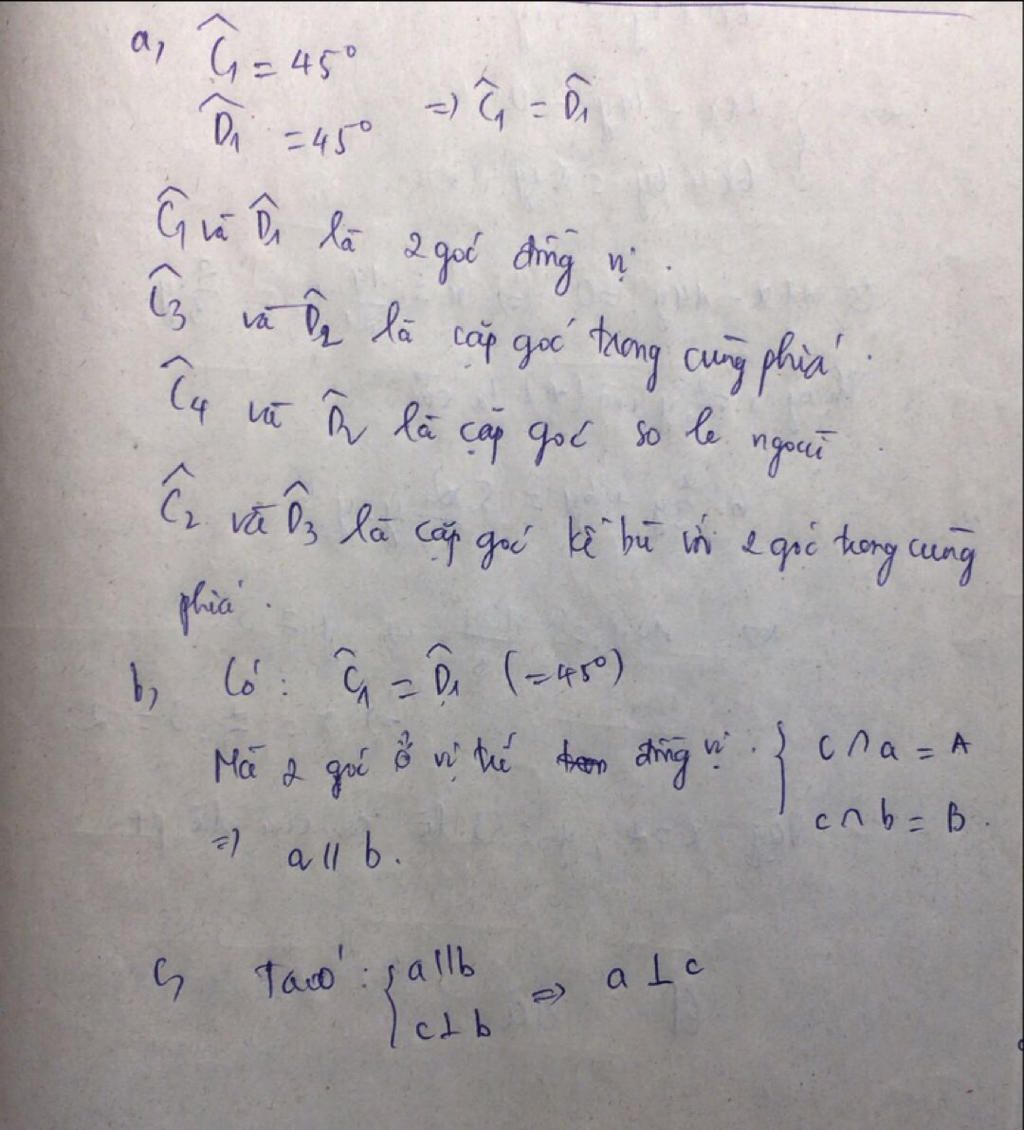 a, Ĉ₁ = 45°
D̂₁ = 45° => Ĉ₁ = D̂₁
Ĉ₁ và D̂₁ là 2 góc đồng vị.
Ĉ₃ và D̂₂ là cặp góc trong cùng phía.
Ĉ₄ và D̂₂ là cặp góc so le ngoài.
Ĉ₂ và D̂₃ là cặp góc kề bù với 2 góc trong cùng
phía.
b, Có: Ĉ₁ = D̂₁ (=45°)
Mà 2 góc ở vị trí đồng vị. { c ∩ a = A
c ∩ b = B.
=> a // b.
c, Ta có: { a // b
c ⊥ b => a ⊥ c